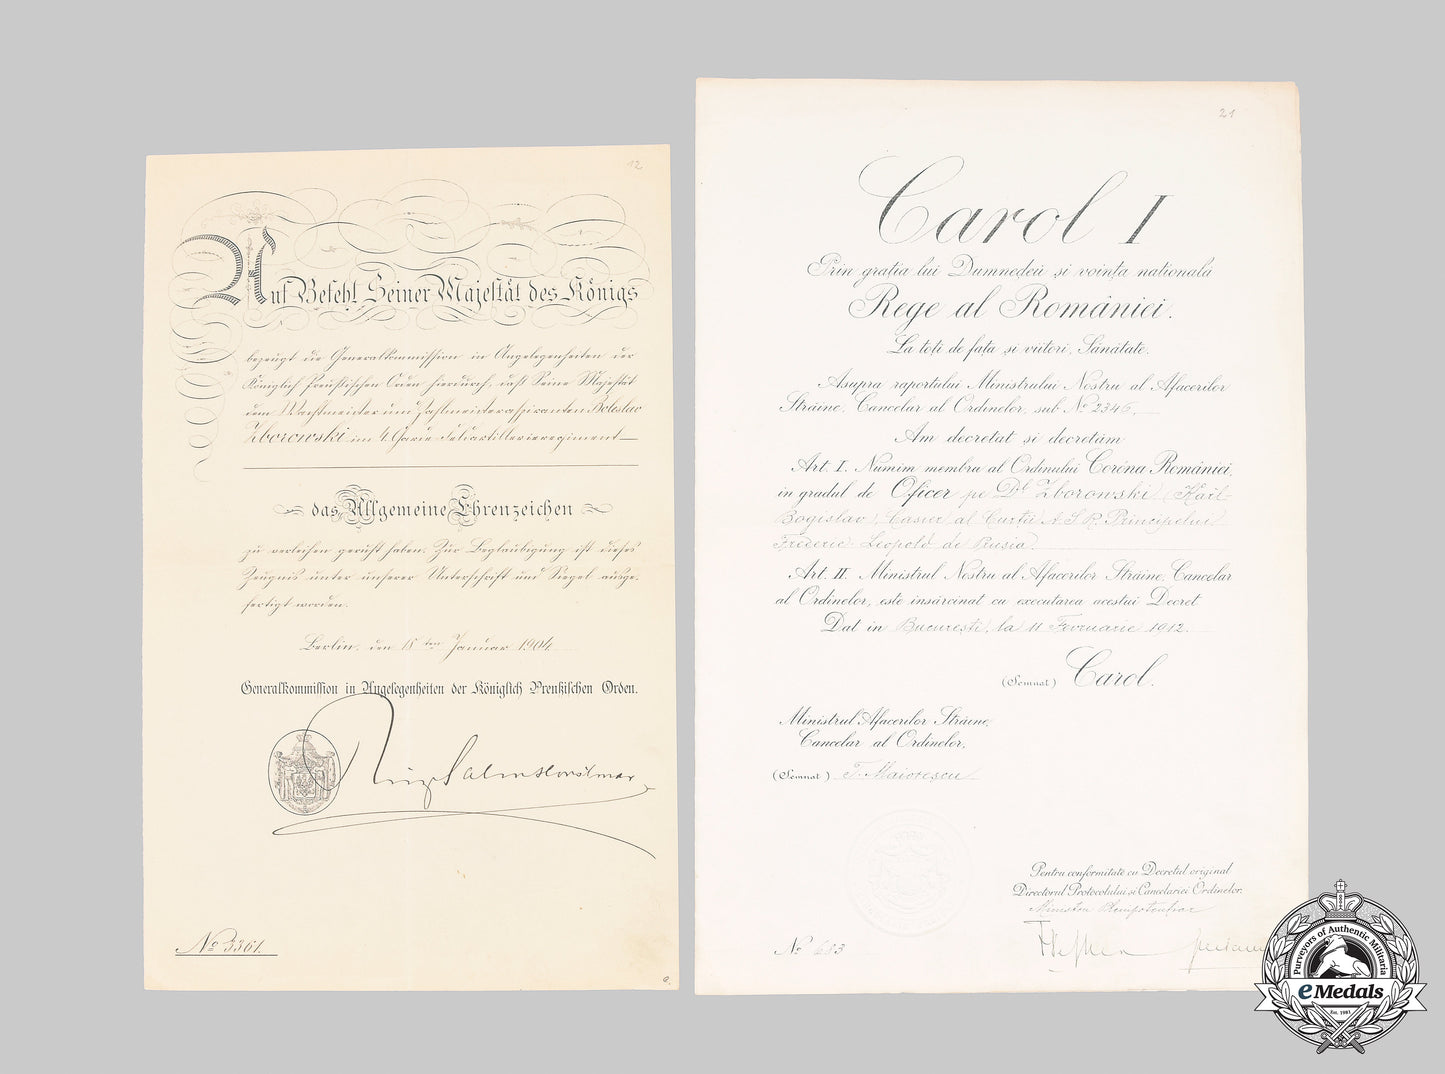 12
Auf Befehl Seiner Majestät des Königs
bezeugt die Generalkommission in Angelegenheiten der
Königlich Preußischen Orden hierdurch, daß Seine Majestät
dem Wachtmeister und Zahlmeisteraspiranten Boleslav
Zborowski im 4. Garde-Feldartillerieregiment
das Allgemeine Ehrenzeichen
zu verleihen geruht haben. Zur Beglaubigung ist dieses
Zeugnis unter unserer Unterschrift und Siegel ausge-
fertigt worden.
Berlin, den 18ten Januar 1904
Generalkommission in Angelegenheiten der Königlich Preußischen Orden.
Prinz Salm Horstmar
No 3361.
21
Carol I
Prin grația lui Dumnedeŭ și voința națională
Rege al României.
La toți de față și viitori, Sănătate.
Asupra raportului Ministrului Nostru al Afacerilor
Străine, Cancelar al Ordinelor, sub No 2346,
Am decretat și decretăm
Art. I. Numim membru al Ordinului Coróna României,
in gradul de Oficer pe Dl Zborowski (Karl-
Bogislav), Casier al Curtii A.S.R. Principelui
Frederic Leopold de Prusia.
Art. II. Ministrul Nostru al Afacerilor Străine, Cancelar
al Ordinelor, este insărcinat cu executarea acestui Decret
Dat in Bucuresti, la 11 Fevruarie 1912.
(Semnat) Carol.
Ministrul Afacerilor Străine,
Cancelar al Ordinelor,
(Semnat) T. Maiorescu
Pentru conformitate cu Decretul original
Directorul Protocolului și Cancelariei Ordinelor.
Ministru Plenipotentiar
No 683
Purveyors of Authentic Militaria
eMedals
Est. 1981